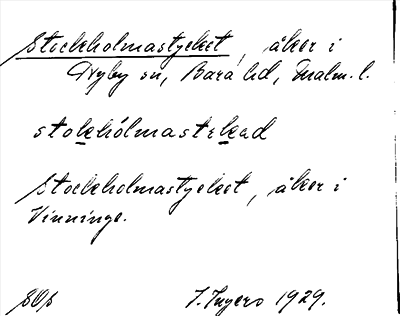 Stockholmastycket, åker i
Dyby sn, Bara hd, Malm. l.
stokhólmastikad
Stockholmastycket, åker i
Vinninge.
J. Ingers 1929.